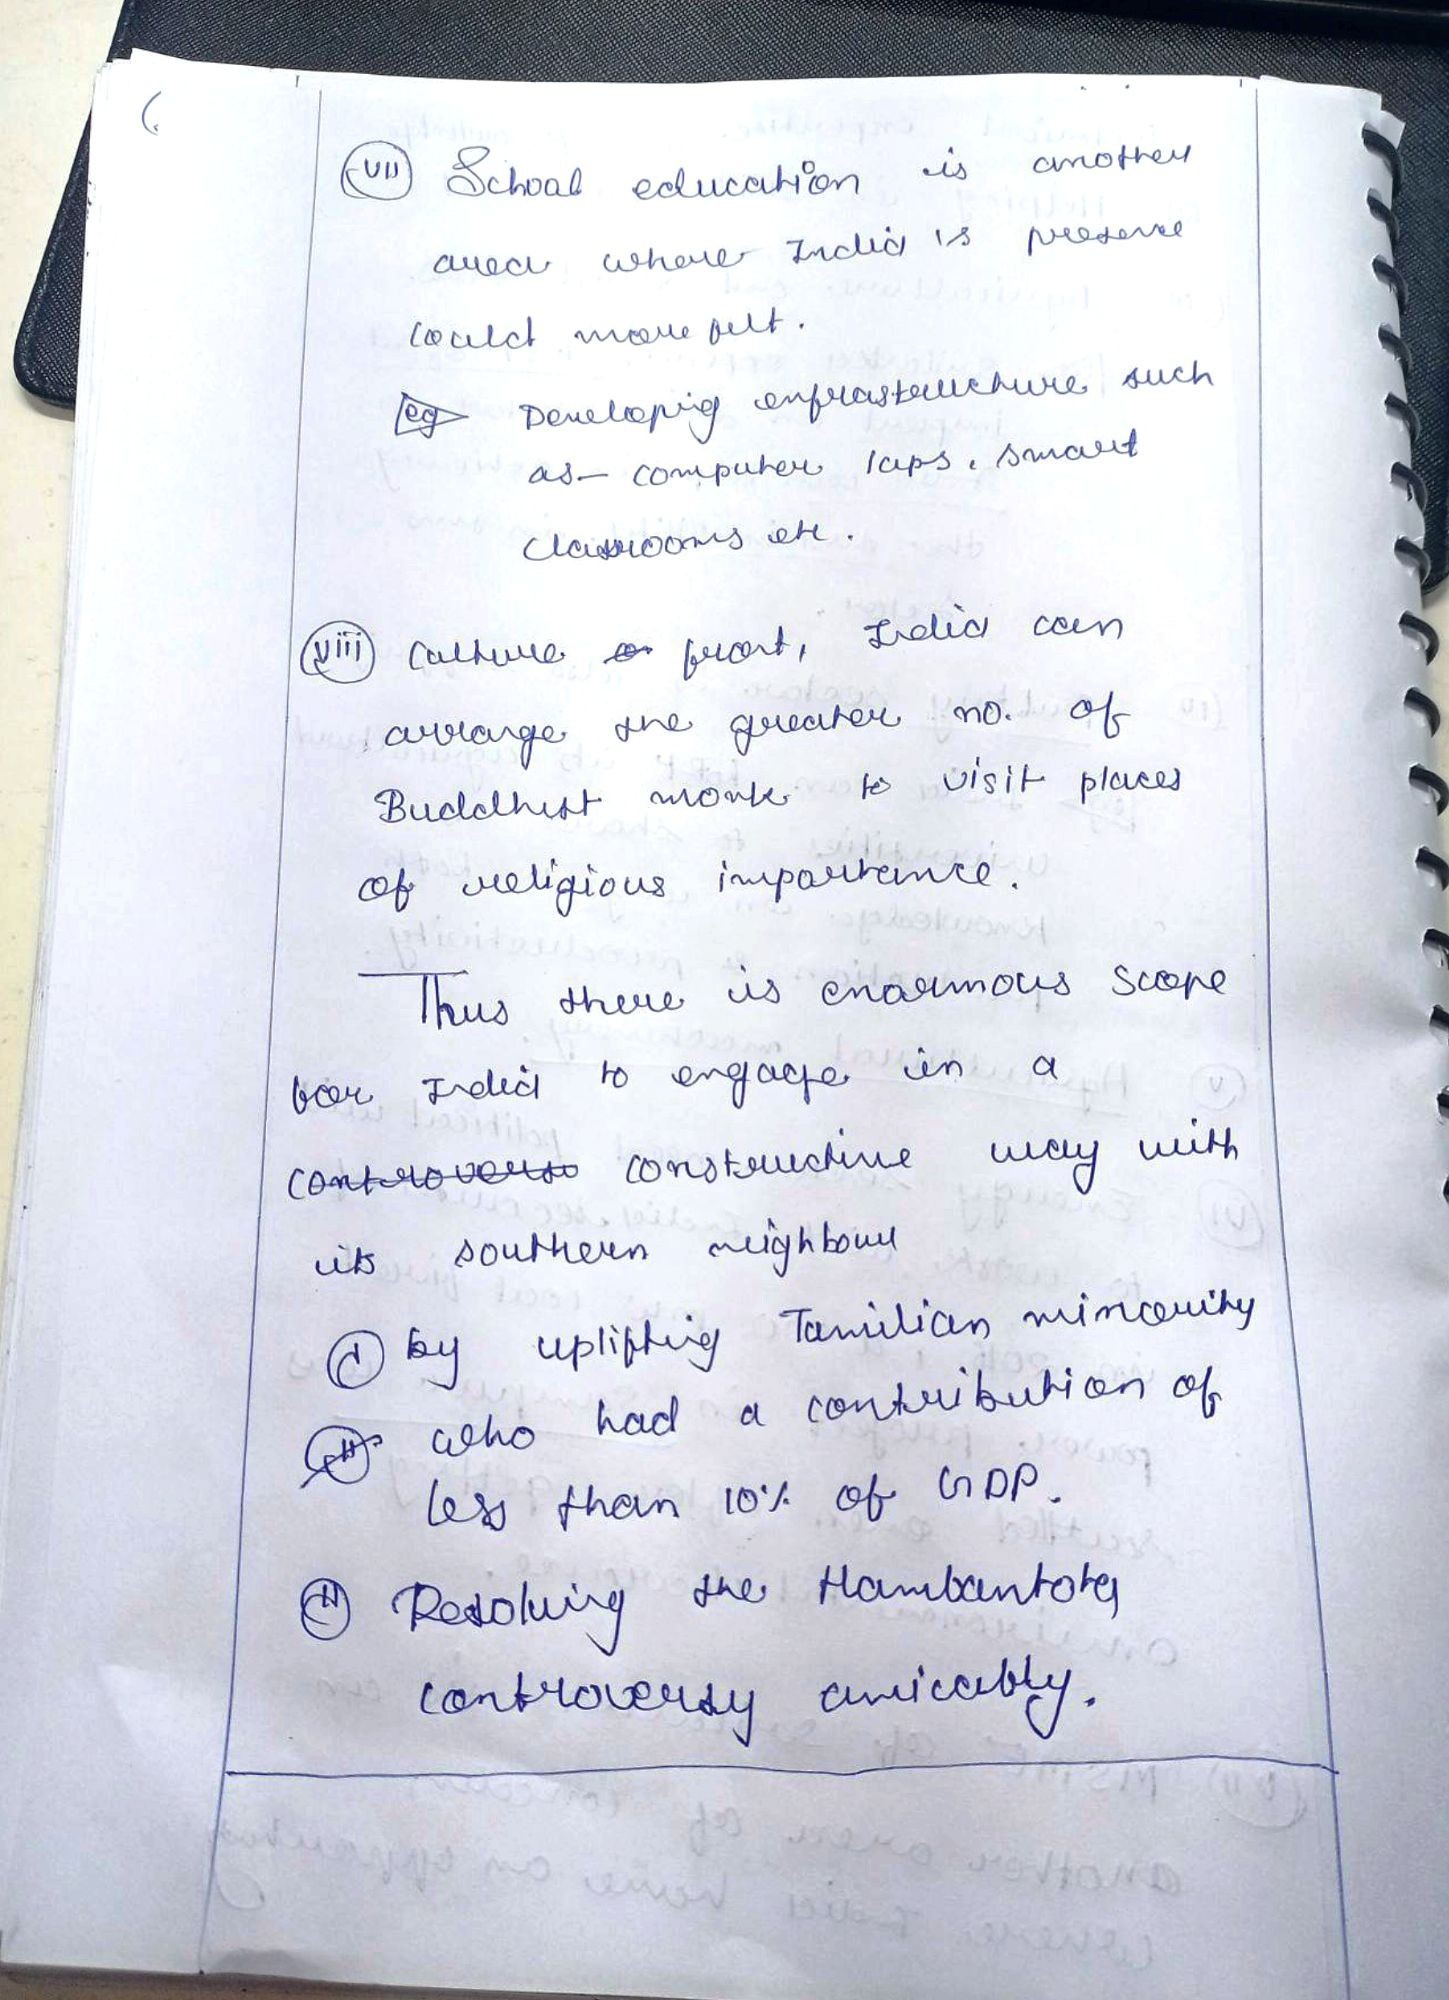 (vii) School education is another
area where India is presence
could more felt.
eg Developing enfrastructure such
as - computer laps, smart
classrooms etc.
(viii) Culture front, India can
arrange the greater no. of
Buddhist monk to visit places
of religious importance.
Thus there is enormous scope
for India to engage in a
constructive way with
its southern neighbour
(i) by uplifting Tamilian minority
who had a contribution of
less than 10% of GDP.
(ii) Resolving the Hambantota
controversy amicably.